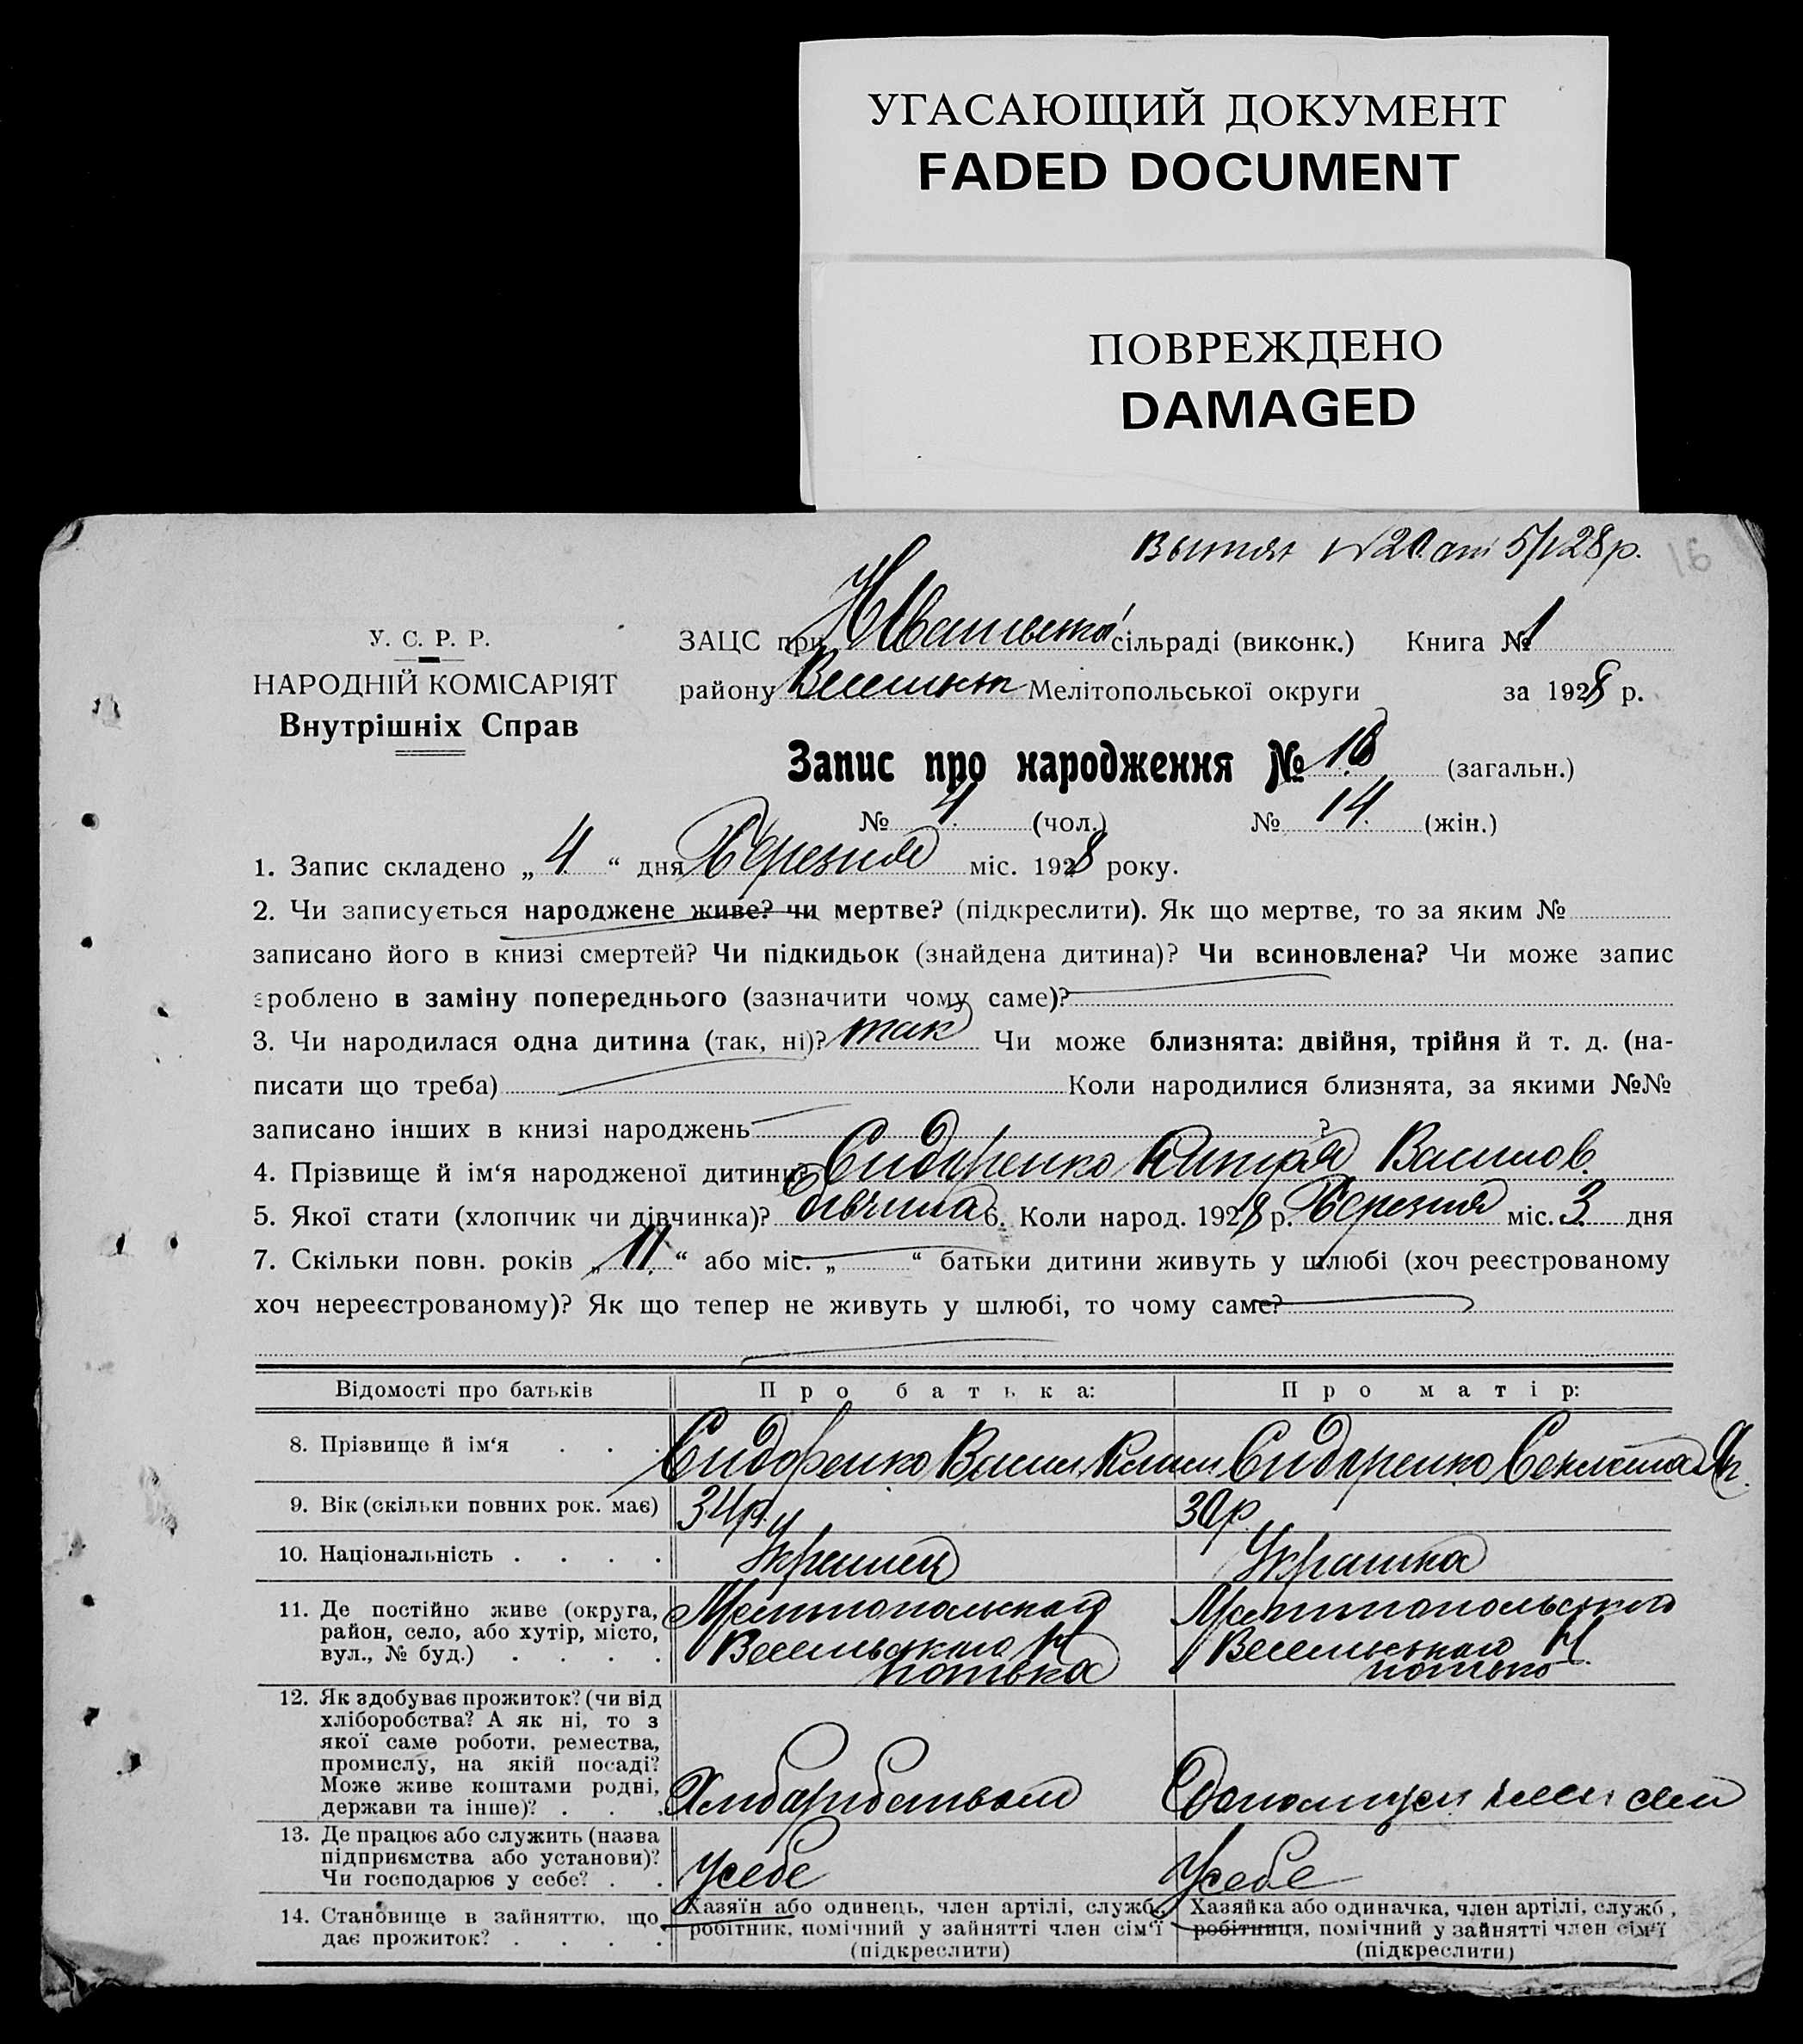 УГАСАЮЩИЙ ДОКУМЕНТ
FADED DOCUMENT
ПОВРЕЖДЕНО
DAMAGED
№ 20 5/V 28 р.
16
У. С. Р. Р.
НАРОДНІЙ КОМІСАРІЯТ
Внутрішніх Справ
ЗАЦС при сільраді (виконк.) Книга № 1
району Мелітопольської округи за 1928 р.
Запис про народження № 18 (загальн.)
№ 4 (чол.) № 14 (жін.)
1. Запис складено „ 4 “ дня Березня міс. 1928 року.
2. Чи записується народжене живе? чи мертве? (підкреслити). Як що мертве, то за яким №
записано його в книзі смертей? Чи підкидьок (знайдена дитина)? Чи всиновлена? Чи може запис
зроблено в заміну попереднього (зазначити чому саме)?
3. Чи народилася одна дитина (так, ні)? так Чи може близнята: двійня, трійня й т. д. (на-
писати що треба) Коли народилися близнята, за якими №№
записано інших в книзі народжень ?
4. Прізвище й ім‘я народженої дитини? Сидоренко Василов.
5. Якої стати (хлопчик чи дівчинка)? дівчина 6. Коли народ. 1928 р. Березня міс. 3 дня
7. Скільки повн. років „ 11 “ або міс. „ “ батьки дитини живуть у шлюбі (хоч реєстрованому
хоч нереєстрованому)? Як що тепер не живуть у шлюбі, то чому саме?
Відомості про батьків Про батька: Про матір:
8. Прізвище й ім‘я . . . Сидоренко Васил Сидоренко
9. Вік (скільки повних рок. має) 34 р. 30 р.
10. Національність . . . . Українец Українка
11. Де постійно живе (округа,
район, село, або хутір, місто,
вул., № буд.) . . . .
Мелітопольскай Мелітопольського
Весельського Н Весельського Н
12. Як здобуває прожиток? (чи від
хліборобства? А як ні, то з
якої саме роботи, ремества,
промислу, на якій посаді?
Може живе коштами родні,
держави та інше)? . . .
13. Де працює або служить (назва
підприємства або установи)?
Чи господарює у себе? . . Усебе Усебе
14. Становище в зайняттю, що
дає прожиток? . . . .
Хазяїн або одинець, член артілі, служб.,
робітник, помічний у зайнятті член сім‘ї
(підкреслити)
Хазяйка або одиначка, член артілі, служб.,
робітниця, помічний у зайнятті член сім‘ї
(підкреслити)